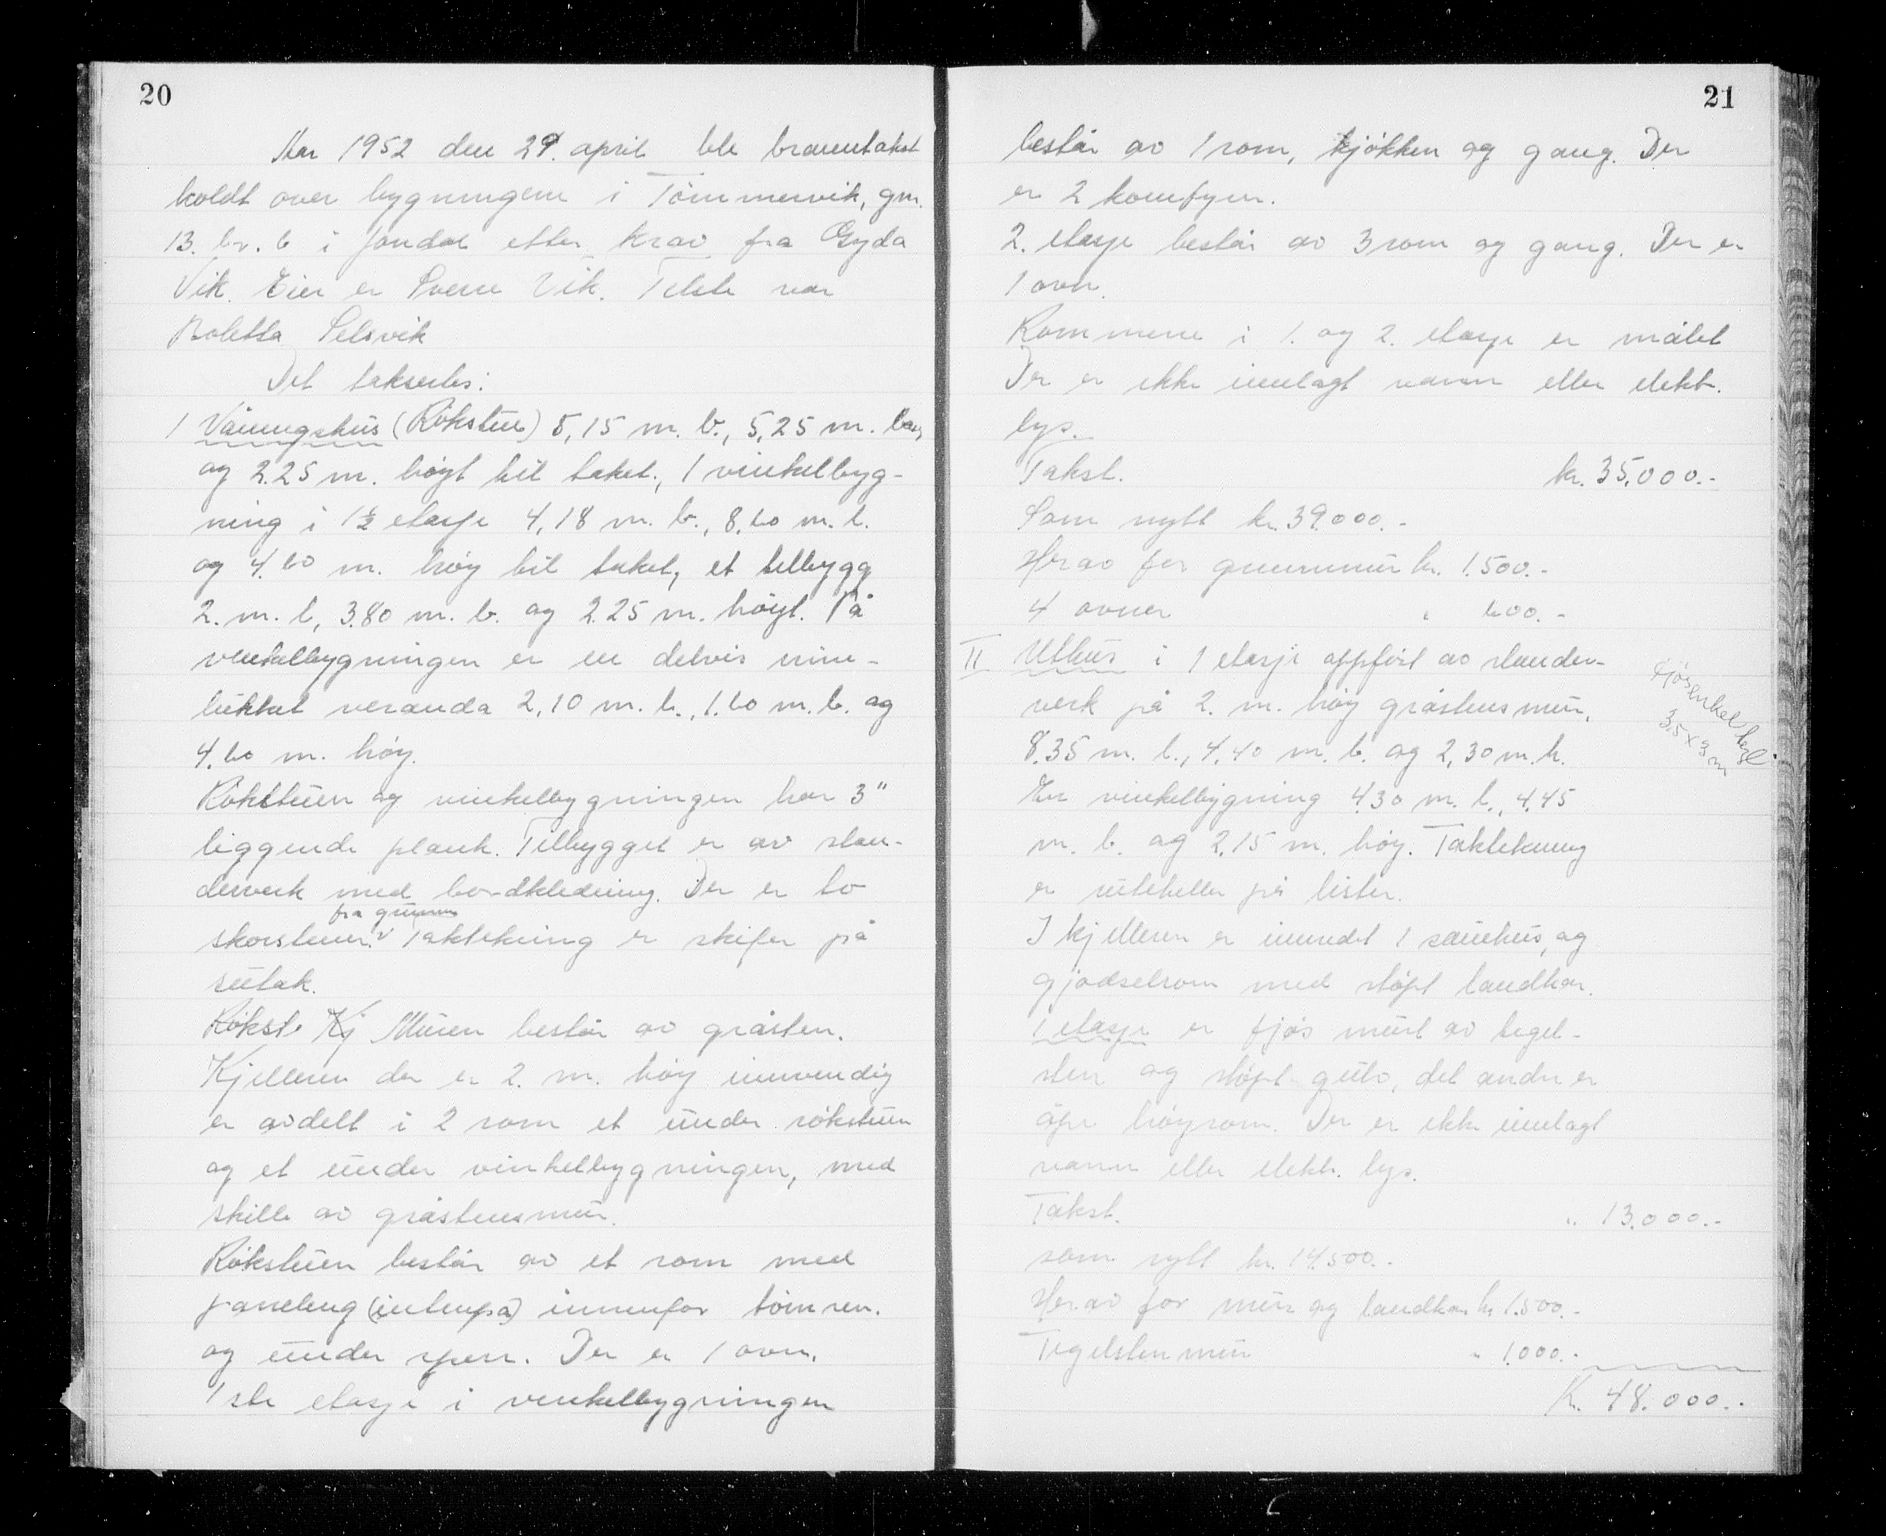 20
Aar 1952 den 29. april ble branntakst
holdt over bygningene i Tømmervik, gnr.
13. br. 6 i Jondal etter krav fra Gyda
Vik. Eier er Sverre Vik. Tilste var
Boletta Selsvik
Det taksertes:
1 Våningshus (Røkstue) 5,15 m. b., 5,25 m. lang
og 2.25 m. høyt til taket., 1 vinkelbyg-
ning i 1½ etasje 4,18 m. b., 8,60 m. l.
og 4.60 m. høy til taket, et tilbygg
2. m. l, 3.80 m. b. og 2.25 m. høyt. På
vinkelbygningen er en delvis inne-
lukket veranda 2,10 m. l., 1.60 m. b. og
4.60 m. høy.
Røkstuen og vinkelbygningen har 3"
liggende plank. Tilbygget er av sten-
derverk med bordkledning. Der er to
fra grunnen
skorstener. Taktekning er skifer på
sutak.
Røkst Kj Muren består av gråsten.
Kjelleren der er 2. m. høy innvendig
er avdelt i 2 rom et under røkstuen
og et under vinkelbygningen, med
skille av gråstensmur.
Røkstuen består av et rom med
paneling innenfor tømren.
og under sperr. Der er 1 ovn.
1ste etasje i vinkelbygningen
21
består av 1 rom, kjøkken og gang. Der
er 2 komfyrer.
2. etasje består av 3 rom og gang. Der er
1 ovn.
Rommene i 1. og 2. etasje er målet
Der er ikke innlagt vann eller elektr.
lys.
Takst. kr. 35.000.-
Som nytt kr. 39.000.-
Herav for grunnmur kr. 1.500.-
4 ovner " 600.-
II Uthus i 1 etasje oppført av stender-
verk på 2. m. høy gråstensmur,
8.35 m. l., 4,40 m. b. og 2,30 m. h.
En vinkelbygning 4.30 m. l., 4.45
m. b. og 2,15 m. høy. Taktekning
er ruteheller på lister.
I kjelleren er innredet 1 sauehus, og
gjødselrom med støpt landkar.
1 etasje er fjøs murt av tegel-
sten og støpt gulv, det andre er
åpe høyrom. Der er ikke innlagt
vann eller elektr. lys.
Takst. " 13.000.-
som nytt kr. 14.500.-
Herav for mur og landkar kr 1.500.-
Tegelstenmur " 1.000.-
Kr. 48.000.-
Fjøs enkel tegl
3,5 x 3 m